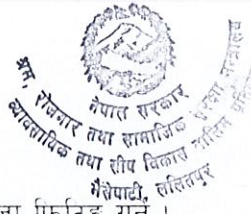 नेपाल सरकार
श्रम, रोजगार तथा सामाजिक सुरक्षा मन्त्रालय
व्यावसायिक तथा सीप विकास तालिम
भैसेपाटी, ललितपुर
फिटिङ्ग गर्ने ।